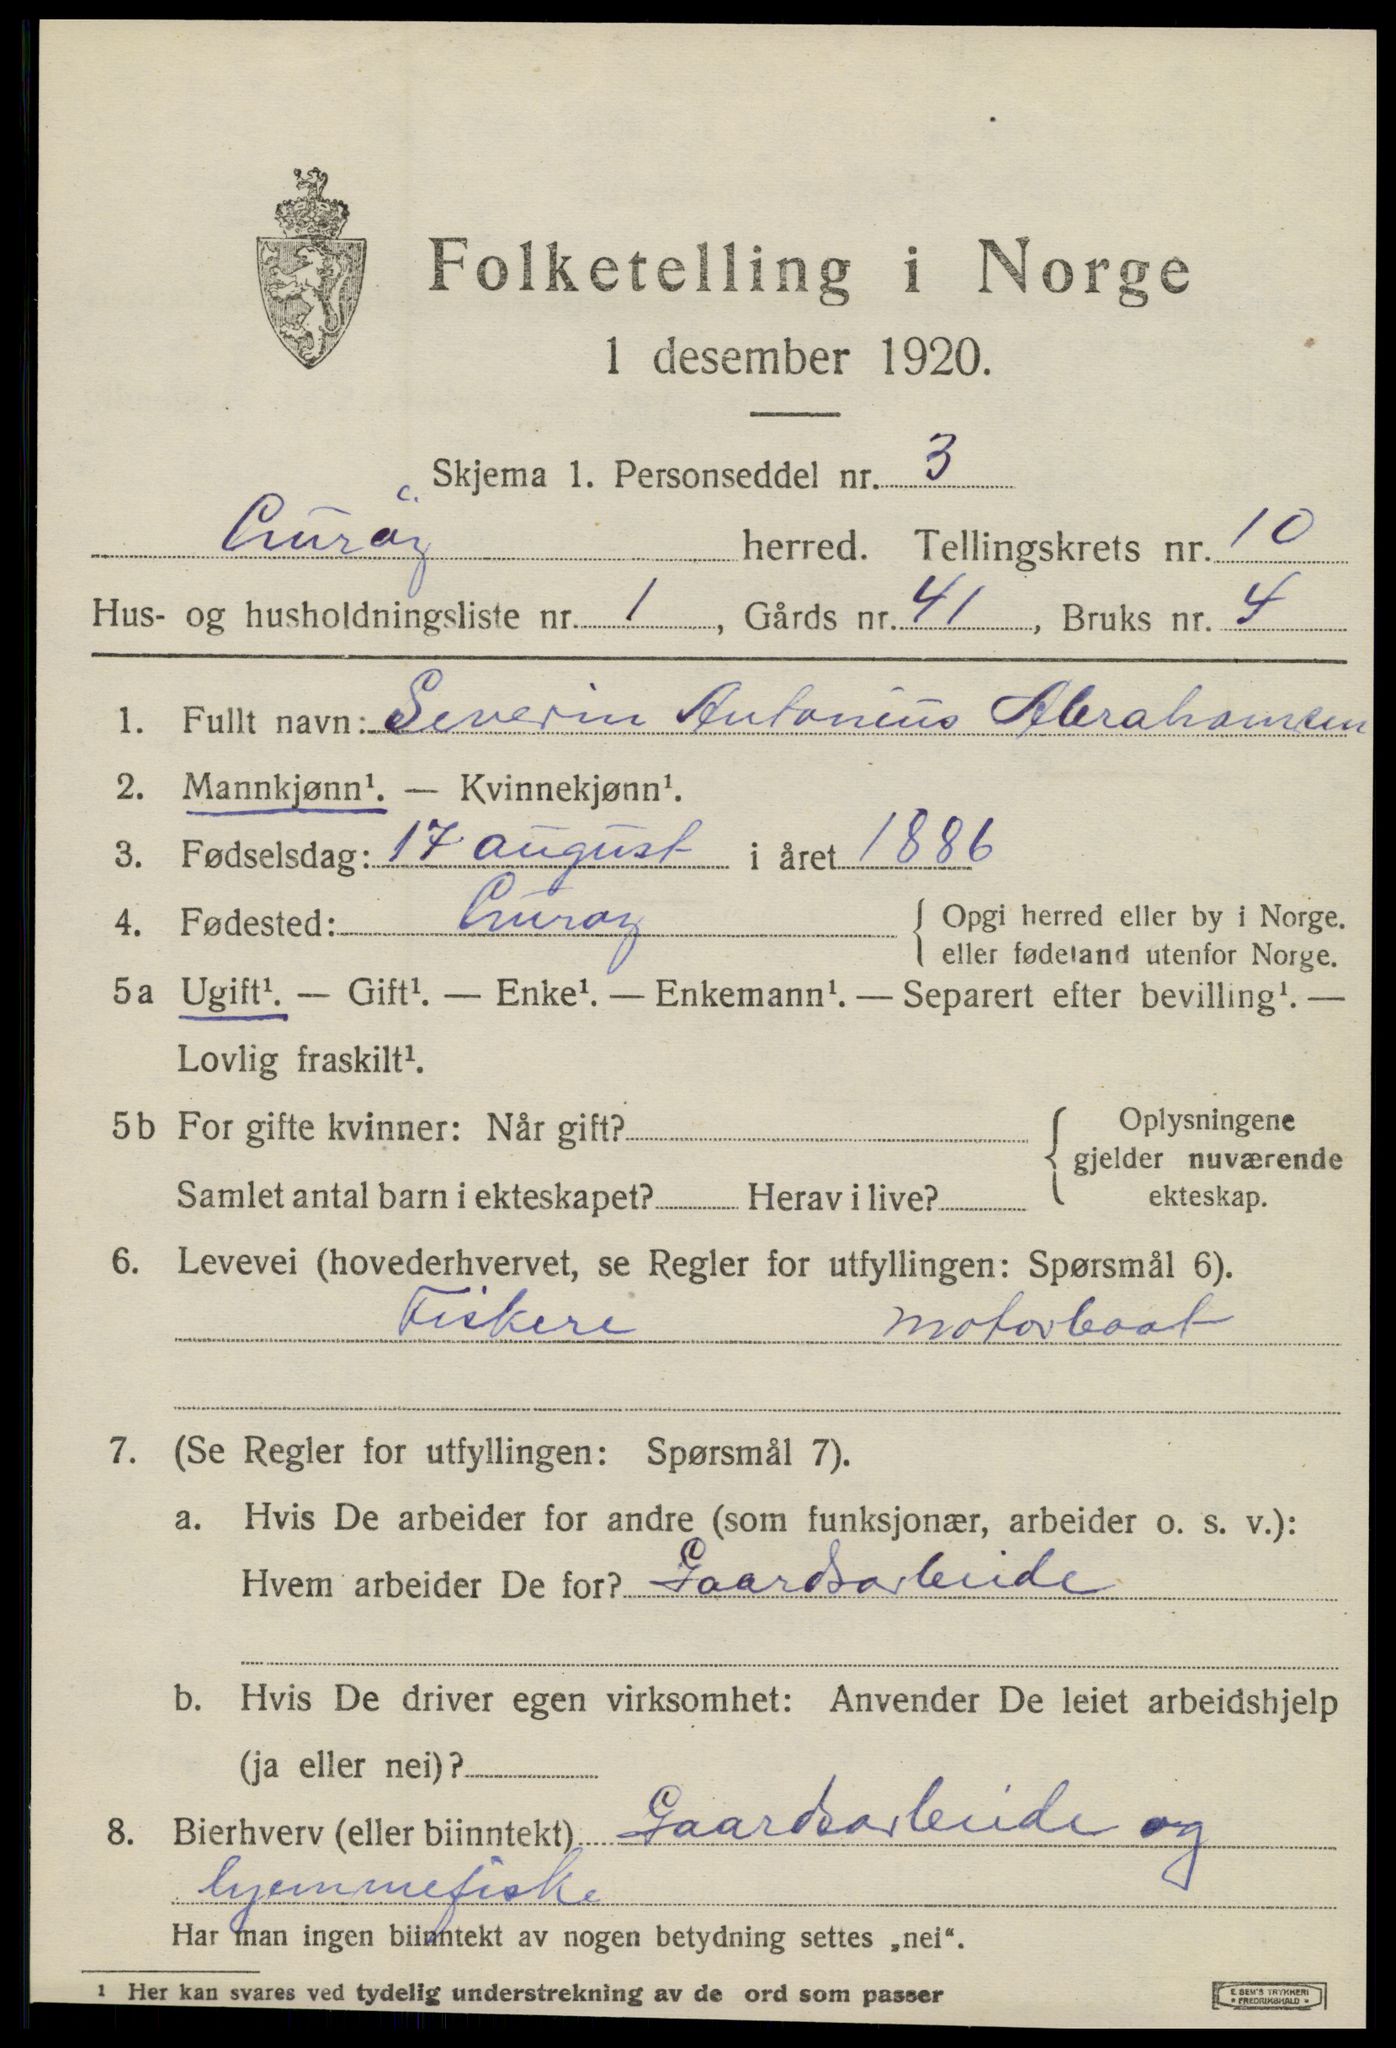 Folketelling i Norge
1 desember 1920.
Skjema 1. Personseddel nr. 3
herred. Tellingskrets nr. 10
Hus- og husholdningsliste nr. 1, Gårds nr. 41, Bruks nr. 4
1. Fullt navn: Severin Antonius Abrahamsen
2. Mannkjønn¹. — Kvinnekjønn¹.
3. Fødselsdag: 17 august i året 1886
4. Fødested: { Opgi herred eller by i Norge.
eller fødeland utenfor Norge.
5a Ugift¹. — Gift¹. — Enke¹. — Enkemann¹. — Separert efter bevilling¹. —
Lovlig fraskilt¹.
5b For gifte kvinner: Når gift? { Oplysningene
gjelder nuværende
Samlet antal barn i ekteskapet? Herav i live? ekteskap.
6. Levevei (hovederhvervet, se Regler for utfyllingen: Spørsmål 6).
Fiskere motorbaat
7. (Se Regler for utfyllingen: Spørsmål 7).
a. Hvis De arbeider for andre (som funksjonær, arbeider o. s. v.):
Hvem arbeider De for? Gaardsarbeide
b. Hvis De driver egen virksomhet: Anvender De leiet arbeidshjelp
(ja eller nei)?
8. Bierhverv (eller biinntekt) Gaardsarbeide og
hjemmefiske
Har man ingen biinntekt av nogen betydning settes „nei“.
¹ Her kan svares ved tydelig understrekning av de ord som passer
E. SEM'S TRYKKERI
* FREDRIKSHALD *